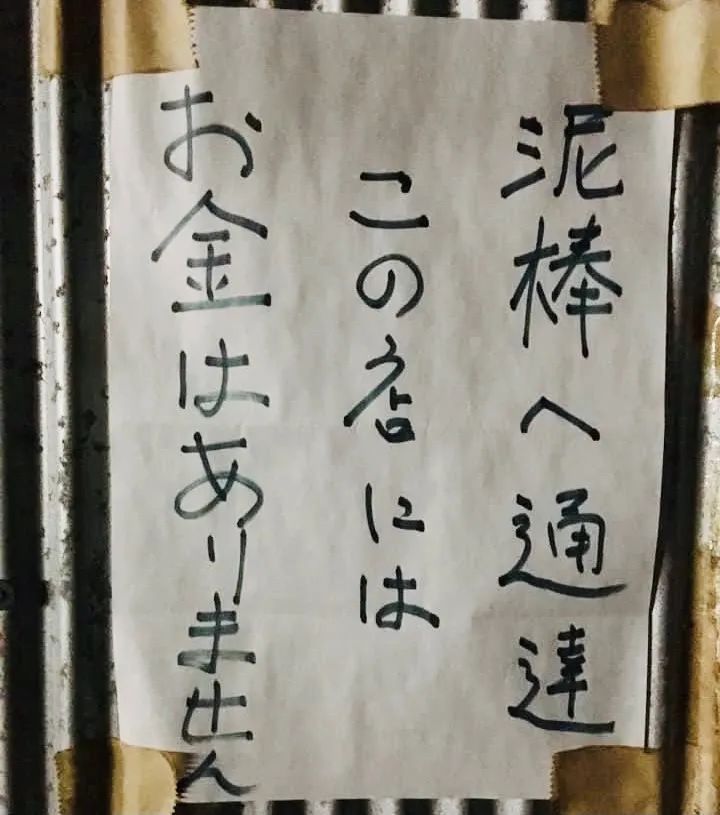 泥棒へ通達
この店には
お金はありません